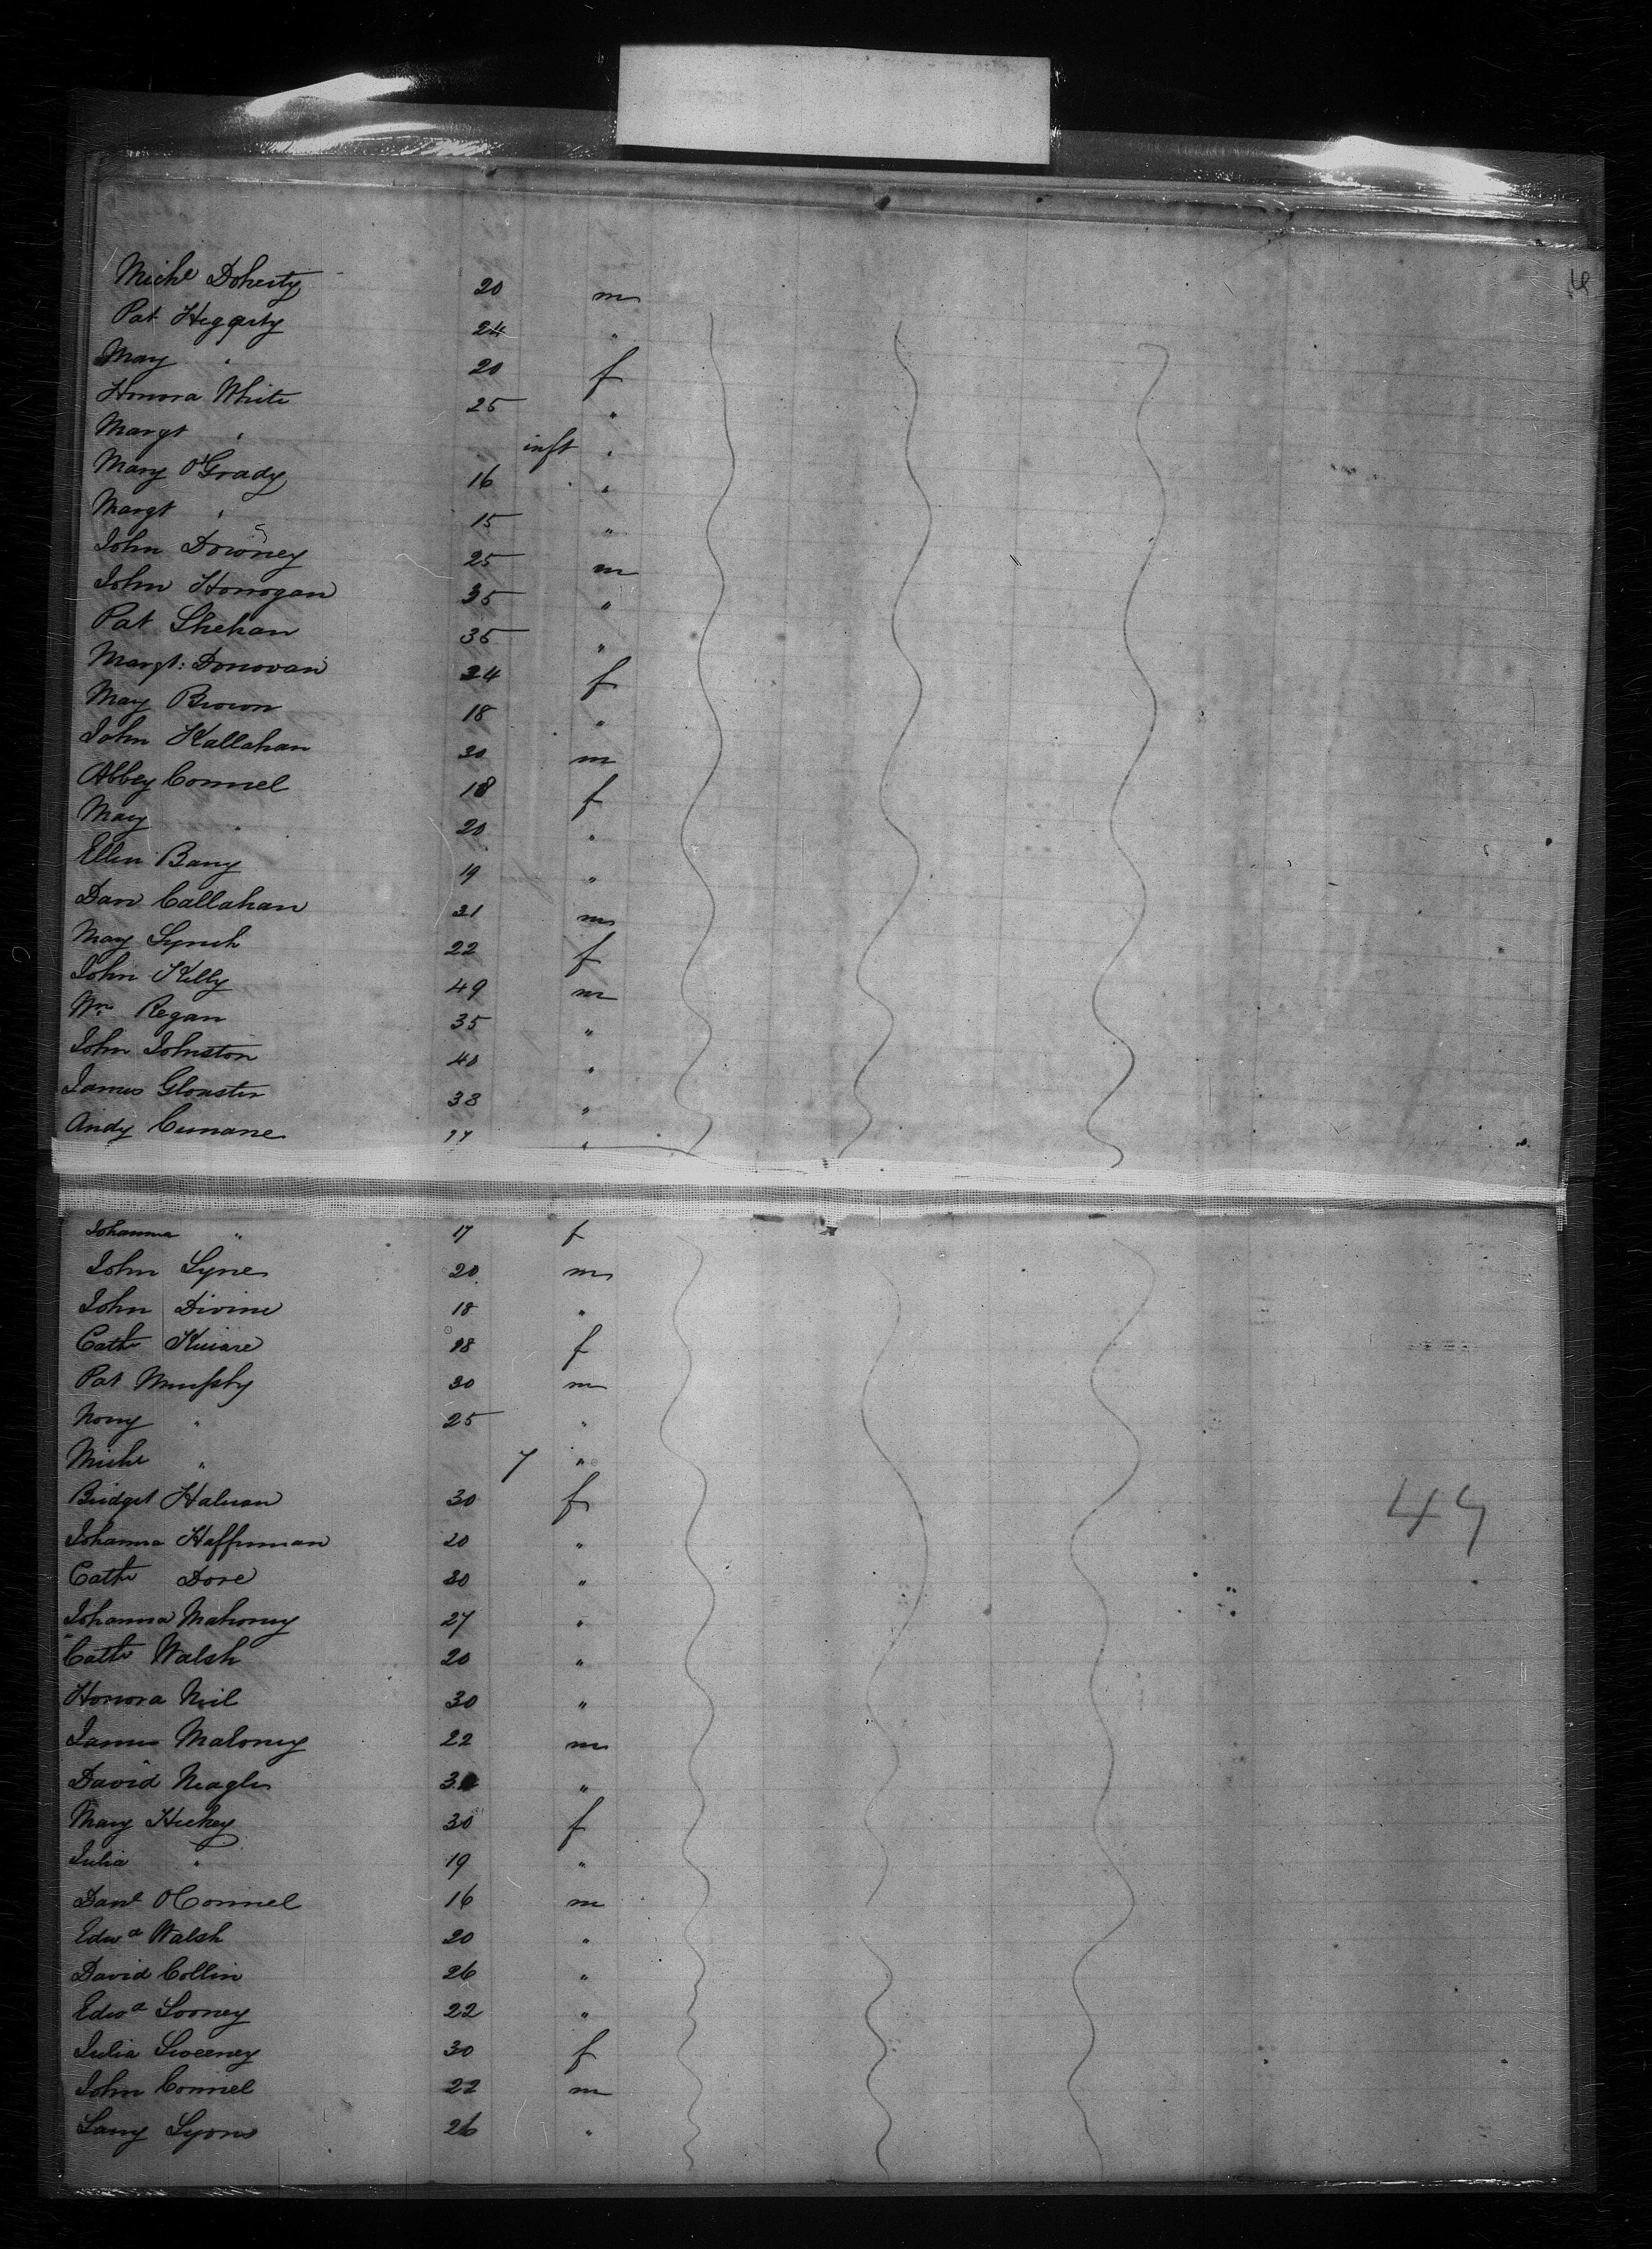 Michl Doherty 20 m
Pat Hegarty 24 "
May " 20 f
Honora White 25 "
Margt " inft "
Mary O'Grady 16 "
Margt " 15 "
John Downey 25 m
John Honogan 35 "
Pat Shehan 35 "
Margt: Donovan 24 f
May Brown 18 "
John Kallahan 30 m
Abbey Connel 18 f
May " 20 "
Ellen Barry 19 "
Dan Callahan 31 m
May Lynch 22 f
John Kelly 49 m
Wm Regan 35 "
John Johnston 40 "
James Gloaster 38 "
Andy Cunane 17 "
Johanna " 17 f
John Lyne 20 m
John Divine 18 "
Cath 18 f
Pat Murphy 30 m
Nony " 25 "
Michl " 7 "
Bridget Halnan 30 f
Johanna Haffernan 20 "
Cath Dore 30 "
Johanna Mahoney 27 "
Cath Walsh 20 "
Honora Neil 30 "
James Maloney 22 m
David Neagle "
Mary Hickey 30 f
Julia " 19 "
Danl OConnel 16 m
Edwd Walsh 20 "
David Collin 26 "
Edwd Looney 22 "
Julia Sweeney 30 f
John Connel 22 m
Larry Lyons 26 "
47